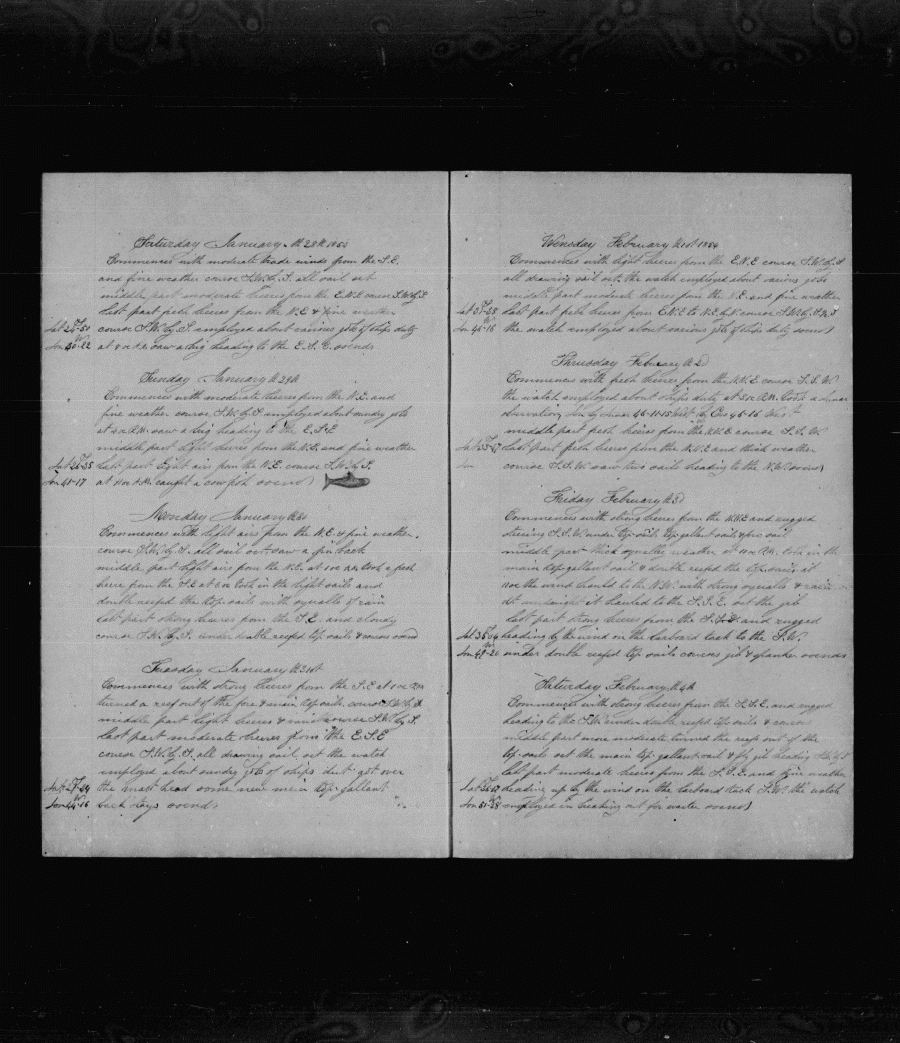 Saturday January th 28th 1854
Commences with moderate trade winds from the S.E.
and fine weather course S.W. by S. all sail set
middle part moderate breeses from the E.N.E course S.W by S
last part fresh breeses from the N.E & fine weather
course S.W. by S. employed about various jobs of ships duty
at saw a brig heading to the E.S.E. so ends
Sunday January th 29th
Commences with moderate breeses from the N.E. and
fine weather course S.W. by S. employed about sundry jobs
at saw a brig heading to the E.S.E
middle part light breeses from the N.E. and fine weather
Lat last part light airs from the N.E. course S.W. by S.
Lon 41-17 at A.M. caught a cow fish so ends
Monday January th 30
Commences with light airs from the N.E. & fine weather.
course S.W. by S. all sail out saw a fin back
middle part light airs from the N.E. at took a fresh
breese from the S.E at took in the light sails and
double reefed the top sails with squalls of rain
last part strong breeses from the S.E. and cloudy
course S.W. by S. under double reefd top sails & courses so ends
Tuesday January th 31st
Commences with strong breeses from the S.E at
turned a reef out of the fore & main top sails. course S.W by S
middle part light breeses & course S.W. by S.
last part moderate breeses from the E.S.E
course S.W. by S. all drawing sail out the watch
employed about sundry jobs of ships duty got over
the mast head some new main top gallant
Lon 44-16 back stays so ends
Wensday February th 1st 1854
Commences with light breeses from the E.N.E course S.W. by S
all drawing sail out, the watch employed about various jobs
middle part moderate breeses from the N.E. and fine weather
last part fresh breeses from E.N.E to N.E. by N. course S.W. by S
Lon 45-16 the watch employed about various jobs of ships duty so ends
Thrusday February th 2d
Commences with fresh breeses from the N.N.E course S.S.W.
the watch employed about ships duty at took a lunar
observation, Lon by Lunar 46-11-15 West by Cro 46-16 West
middle part fresh breeses from the N.N.E course S.S.W.
last part fresh breeses from the N.N.E and thick weather
Lon course S.S.W. saw two sails heading to the N.W. so ends
Friday February th 3d
Commences with strong breeses from the N.N.E and rugged
steering S.S.W. under top sails top gallant sails &
middle part thick squally weather at took in the
main top gallant sail & double reefd the top sails at
the wind hauled to the N.W. with strong squalls & rain
at midnight it hauled to the S.S.E. out the jib
last part strong breeses from the and rugged
heading by the wind on the larboard tack to the S.W.
Lon 49-20 under double reefd top sails courses jib & spanker so ends
Saturday February th 4th
Commences with strong breeses from the S.S.E. and rugged
heading to the S.W. under double reefd top sails & courses
middle part more moderate turned the reefs out of the
top sails out the main top gallant sail & fly jib heading S.W. by S
last part moderate breeses from the S.S.E. and fine weather
heading up by the wind on the larboard tack S.W. the watch
employed in breaking out for water so ends